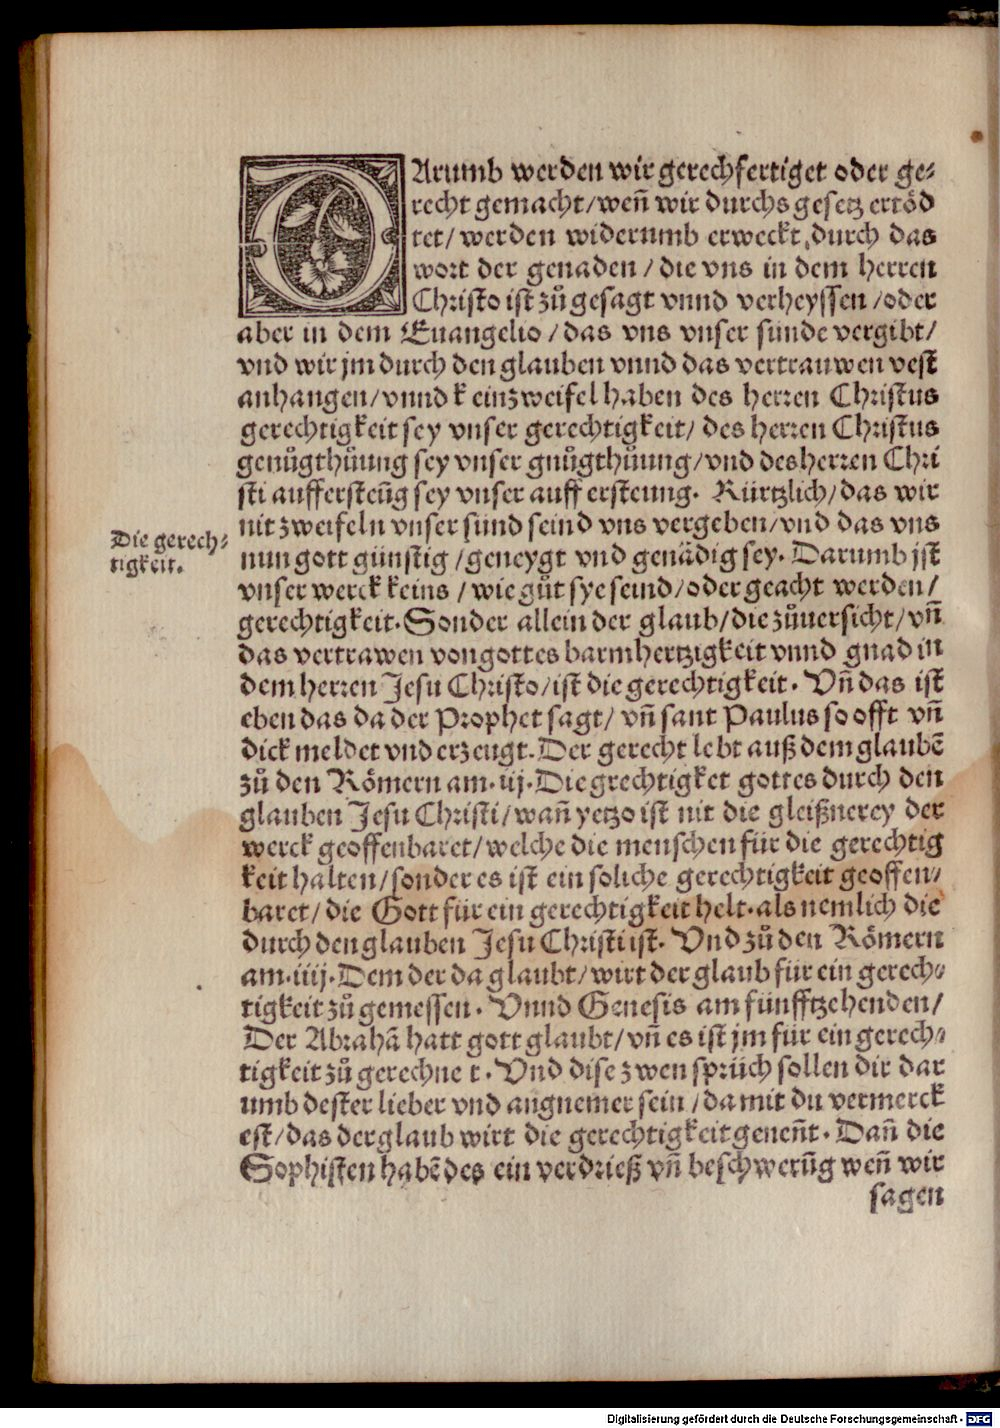 DArumb werden wir gerechfertiget oder ge⸗
recht gemacht/wen̄ wir durchs gesetz ertöd
tet/ werden widerumb erweckt, durch das
wort der genaden / die vns in dem herren
Christo ist zů gesagt vnnd verheyssen /oder
aber in dem Euangelio /das vns vnser sünde vergibt/
vnd wir jm durch den glauben vnnd das vertrauwen vest
anhangen/vnnd kein zweifel haben des herren Christus
gerechtigkeit sey vnser gerechtigkeit/ des herren Christus
genůgthůung sey vnser gnůgthůung/vnd des herren Chri
sti aufferstēūg sey vnser auffersteung. Kürtzlich/das wir
nit zweifeln vnser sünd seind vns vergeben/vnd das vns
nun gott günstig /geneygt vnd genädig sey. Darumb jst
vnser werck keins / wie gůt sye seind/oder geacht werden/
gerechtigkeit. Sonder allein der glaub/die zůuersicht/vn̄
das vertrawen von gottes barmhertzigkeit vnnd gnad in
dem herren Jesu Christo/ist die gerechtigkeit. Vn̄ das ist
eben das da der Prophet sagt/ vn̄ sant Paulus so offt vn̄
dick meldet vnd erzeugt. Der gerecht lebt auß dem glaubē
zů den Römern am. iij. Die grechtigket gottes durch den
glauben Jesu Christi/wan̄ yetzo ist nit die gleißnerey der
werck geoffenbaret/welche die menschen für die gerechtig
keit halten/sonder es ist ein soliche gerechtigkeit geoffen⸗
baret/die Gott für ein gerechtigkeit helt. als nemlich die
durch den glauben Jesu Christi ist. Vnd zů den Römern
am. iiij. Dem der da glaubt/wirt der glaub für ein gerech⸗
tigkeit zů gemessen. Vnnd Genesis am fünfftzehenden/
Der Abrahā hatt gott glaubt/vn̄ es ist jm für ein gerech⸗
tigkeit zů gerechnet. Vnd dise zwen sprüch sollen dir dar
umb dester lieber vnd angnemer sein /da mit du vermerck
est/das der glaub wirt die gerechtigkeit genen̄t. Dan̄ die
Sophisten habē des ein verdrieß vn̄ beschwerūg wen̄ wir
sagen
Die gerech⸗
tigkeit.
Digitalisierung gefördert durch die Deutsche Forschungsgemeinschaft - DFG